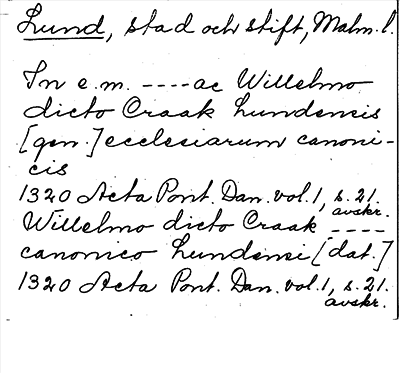 Lund, stad och stift, Malm. l.
In e.m. ---- ac Willelmo
dicto Craak Lundensis
[gen.] ecclesiarum canoni-
cis
1320 Acta Pont. Dan. vol. 1, s. 21.
avskr.
Willelmo dicto Craak ----
canonico Lundensi [dat.]
1320 Acta Pont. Dan. vol. 1, s. 21.
avskr.